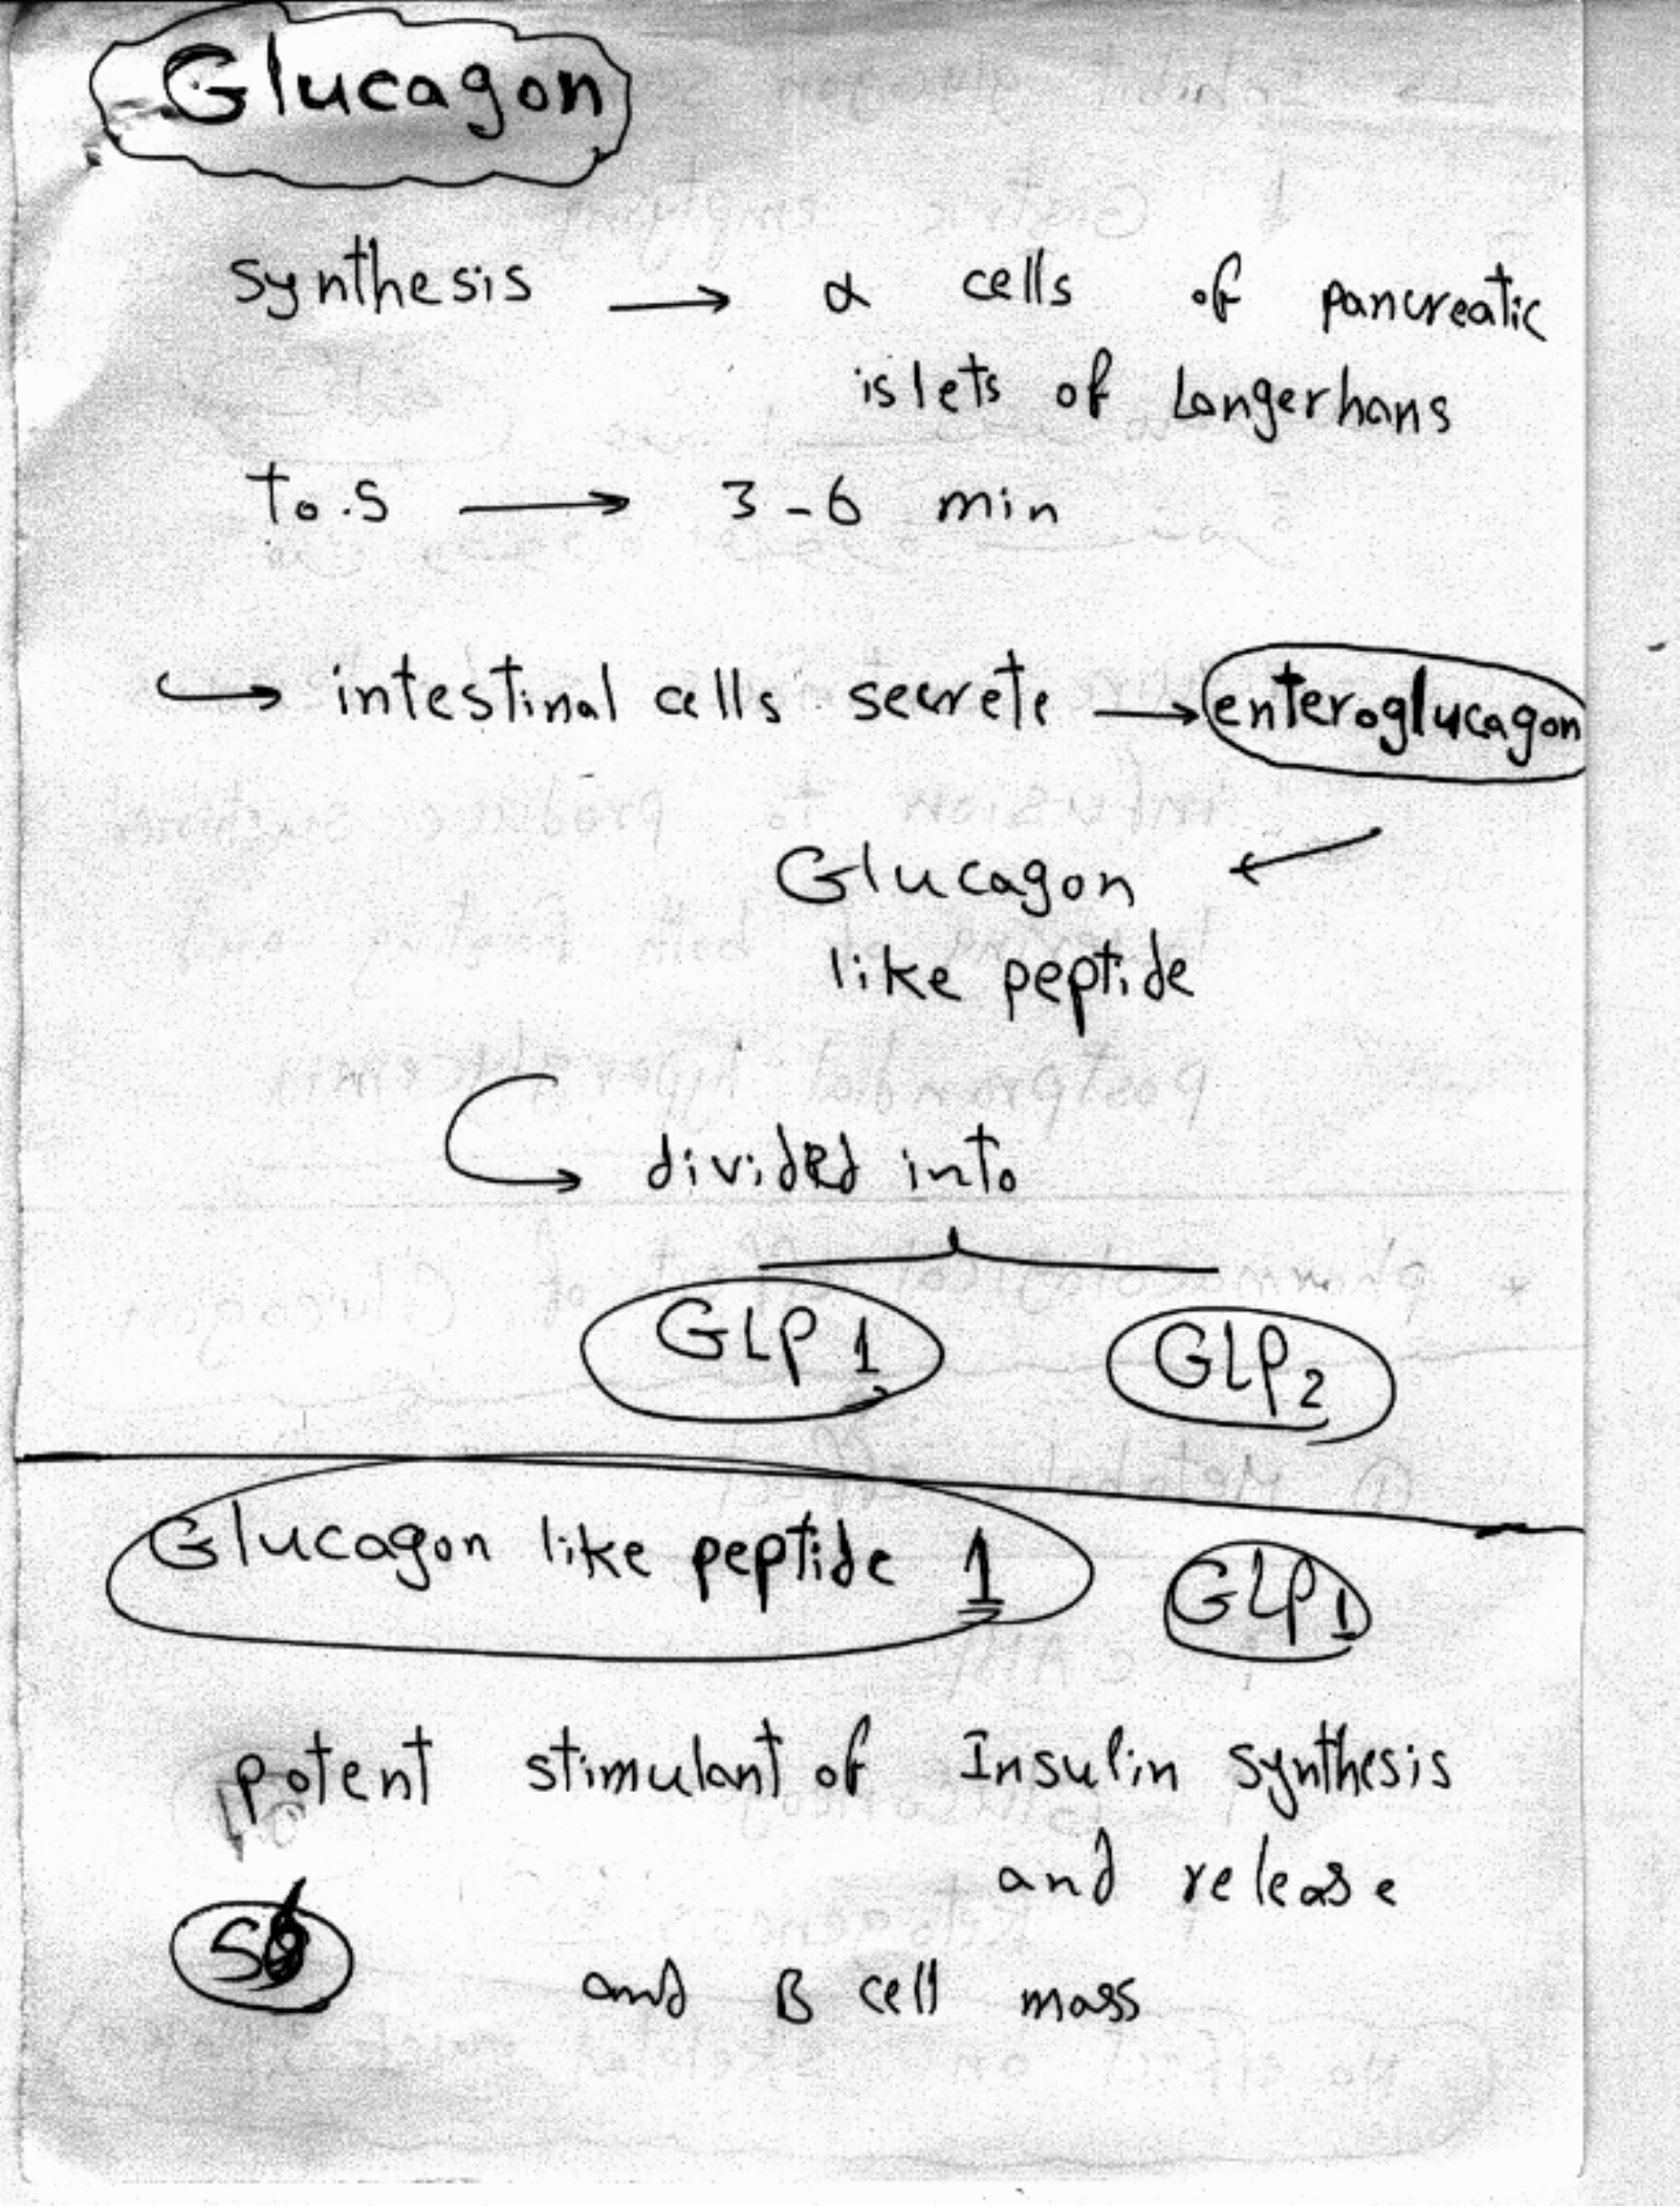 Glucagon
synthesis → α cells of pancreatic
islets of Langerhans
T0.5 → 3-6 min
↪ intestinal cells secrete → enteroglucagon
Glucagon ←
like peptide
↪ divided into
GLP 1 GLP2
Glucagon like peptide 1 GLP1
potent stimulant of Insulin synthesis
and release
and B cell mass